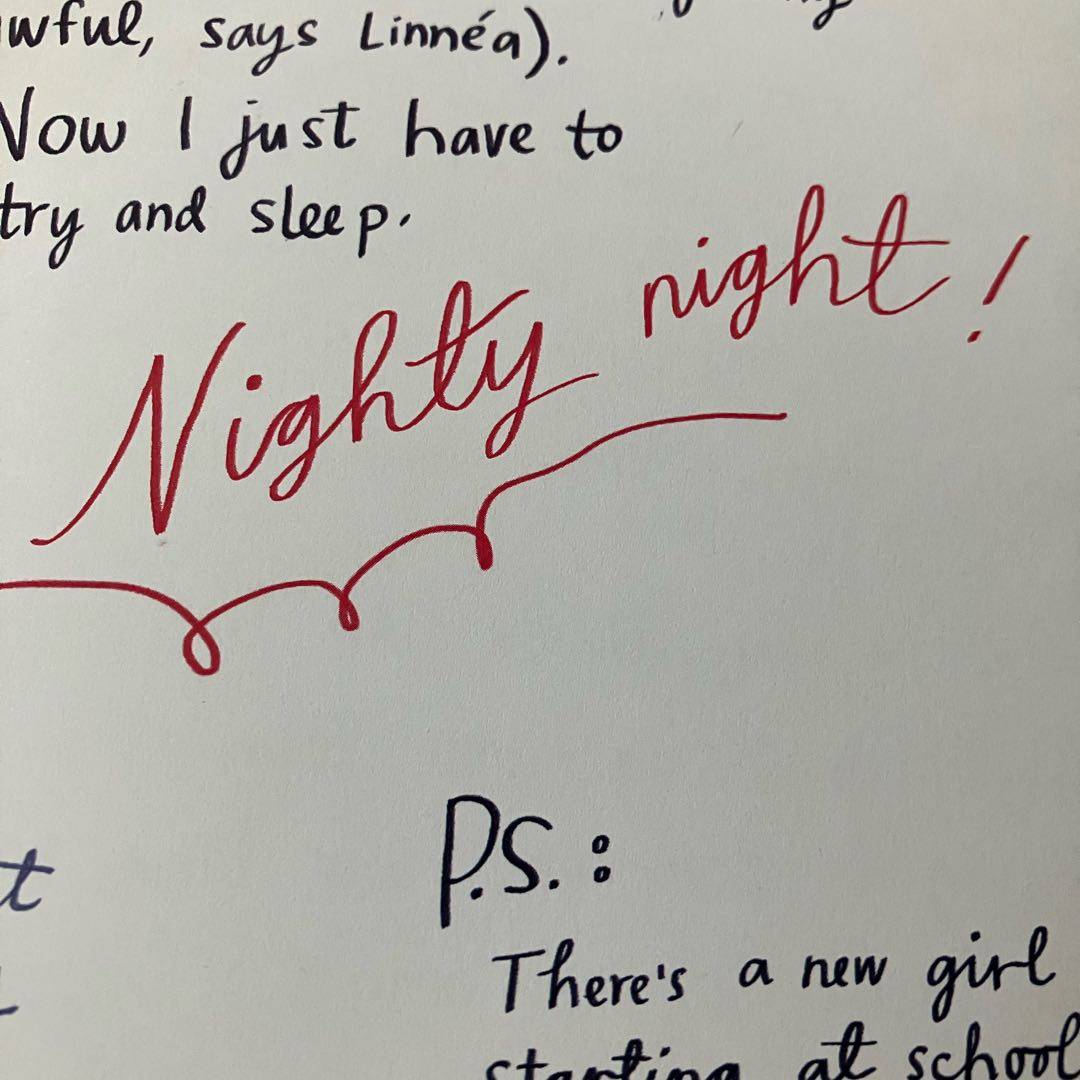 says Linnéa).
Now I just have to
try and sleep.
Nighty night!
P.S.:
There's a new girl
starting at school